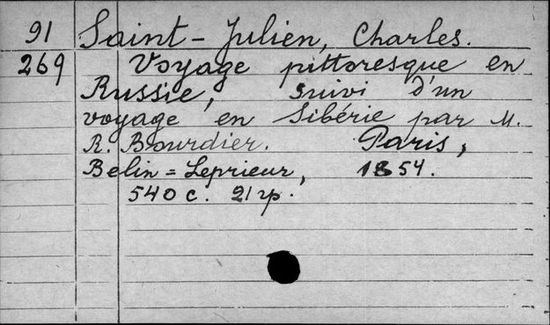 91 Saint-Julien, Charles.
269 Voyage pittoresque en
Russie, suivi d'un
voyage en Sibérie par M.
R. Bourdier. Paris,
Belin=Leprieur, 1854.
540 c. 21 гр.